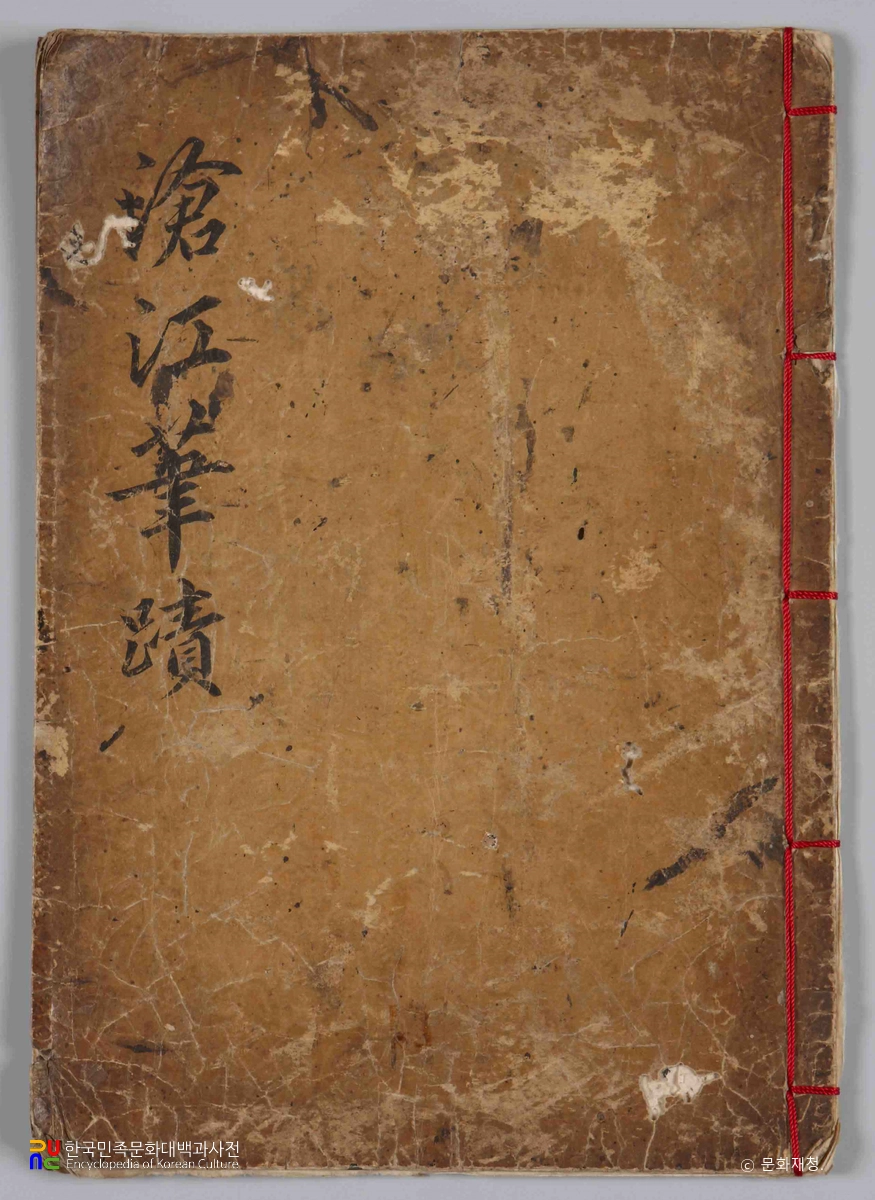 滄江筆蹟
한국민족문화대백과사전
Encyclopedia of Korean Culture
© 문화재청